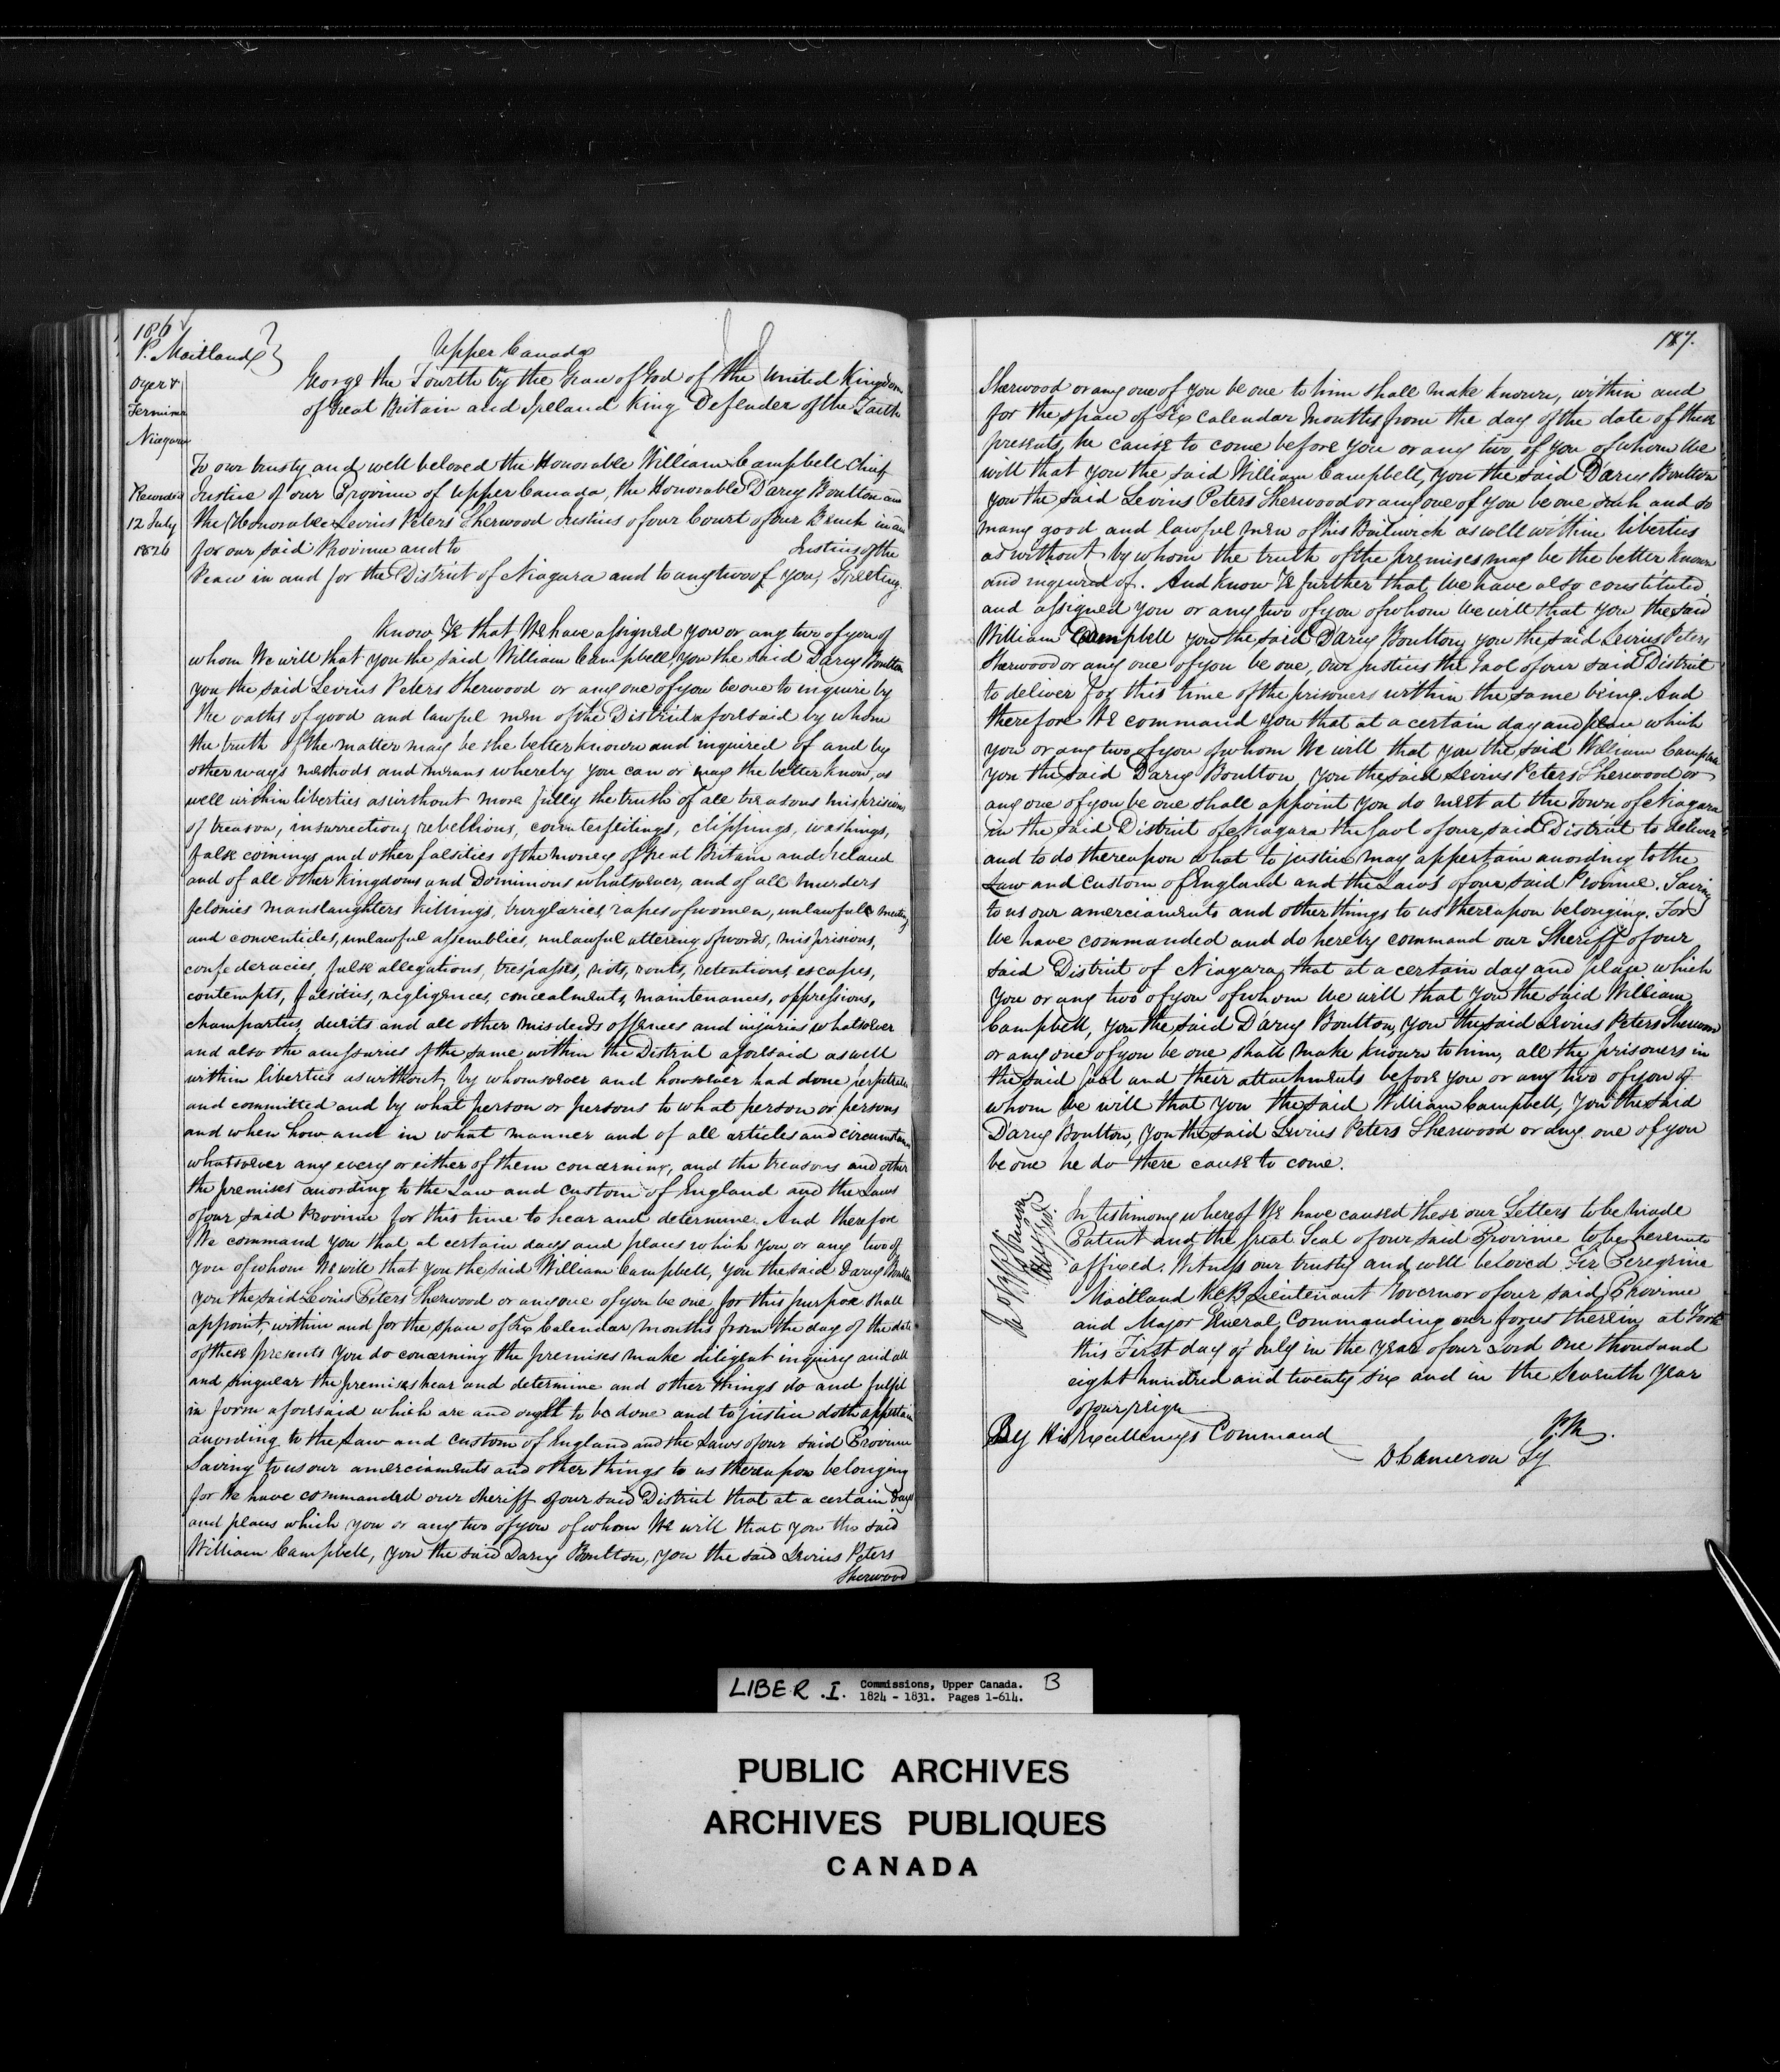 186
P. Maitland
Upper Canada
Oyer &
Terminer
Niagara
George the Fourth by the Grace of God of the United Kingdom
of Great Britain and Ireland King Defender of the Faith
Recorded
12 July
1826
To our trusty and well beloved the Honorable William Campbell Chief
Justice of our Province of Upper Canada, the Honorable Darcy Boulton and
the Honorable Levius Peters Sherwood Justices of our Court of our Bench in and
for our said Province and to Justices of the
Peace in and for the District of Niagara and to any two of you, Greeting.
Know Ye that We have assigned you or any two of you of
whom We will that you the said William Campbell, you the said Darcy Boulton
you the said Levius Peters Sherwood or any one of you be one to inquire by
the oaths of good and lawful men of the District aforesaid by whom
the truth of the matter may be the better known and inquired of and by
other ways methods and means whereby you can or may the better know, as
well within liberties as without more fully the truth of all treasons misprisions
of treason, insurrections, rebellions, counterfeitings, clippings, washings,
false coinings and other falsities of the money of Great Britain and Ireland
and of all other Kingdoms and Dominions whatsoever, and of all murders
felonies manslaughters killings, burglaries, rapes of women, unlawful meetings
and conventicles, unlawful assemblies, unlawful uttering of words, misprisions,
confederacies, false allegations, trespasses, riots, routs, retentions, escapes,
contempts, falsities, negligences, concealments, maintenances, oppressions,
champarties, deceits and all other misdeeds offences and injuries whatsoever
and also the accessaries of the same within the District aforesaid as well
within liberties as without, by whomsoever and howsoever had done perpetrated
and committed and by what person or persons to what person or persons
and when how and in what manner and of all articles and circumstances
whatsoever any every or either of them concerning, and the treasons and other
the premises according to the Law and Custom of England and the Laws
of our said Province for this time to hear and determine. And therefore
We command you that at certain days and places which you or any two of
you of whom We will that you the said William Campbell, you the said Darcy Boulton
you the said Levius Peters Sherwood or any one of you be one, for this purpose shall
appoint, within and for the space of Six Calendar Months from the day of the date
of these presents you do concerning the premises make diligent inquiry and all
and singular the premises hear and determine and other things do and fulfil
in form aforesaid which are and ought to be done and to justice doth appertain
according to the Law and Custom of England and the Laws of our said Province
Saving to us our amerciaments and other things to us thereupon belonging
for We have commanded our Sheriff of our said District that at a certain days
and places which you or any two of you of whom We will that you the said
William Campbell, you the said Darcy Boulton, you the said Levius Peters
Sherwood
187.
Sherwood or any one of you be one to him shall make known, within and
for the space of Six Calendar Months from the day of the date of these
presents, he cause to come before you or any two of you of whom We
will that you the said William Campbell, you the said Darcy Boulton
you the said Levius Peters Sherwood or any one of you be one such and so
many good and lawful men of his Bailiwick as well within liberties
as without by whom the truth of the premises may be the better known
and inquired of. And Know Ye further that We have also constituted
and assigned you or any two of you of whom We will that you the said
William Campbell you the said Darcy Boulton, you the said Levius Peters
Sherwood or any one of you be one, our justices the Gaol of our said District
to deliver for this time of the prisoners within the same being. And
therefore We command you that at a certain day and place which
you or any two of you of whom We will that you the said William Campbell
you the said Darcy Boulton, you the said Levius Peters Sherwood or
any one of you be one shall appoint you do meet at the Town of Niagara
in the said District of Niagara the Gaol of our said District to deliver
and to do thereupon what to justice may appertain according to the
Law and Custom of England and the Laws of our said Province. Saving
to us our amerciaments and other things to us thereupon belonging. For
We have commanded and do hereby command our Sheriff of our
said District of Niagara, that at a certain day and place which
you or any two of you of whom We will that you the said William
Campbell, you the said D'arcy Boulton, you the said Levius Peters Sherwood
or any one of you be one shall make known to him, all the prisoners in
the said Gaol and their attachments before you or any two of you of
whom We will that you the said William Campbell, you the said
D'arcy Boulton, you the said Levius Peters Sherwood or any one of you
be one he do there cause to come.
In testimony whereof We have caused these our Letters to be made
Patent and the Great Seal of our said Province to be hereunto
affixed. Witness our trusty and well beloved Sir Peregrine
Maitland K.C.B. Lieutenant Governor of our said Province
and Major General Commanding our forces therein at York
this First day of July in the year of our Lord One thousand
eight hundred and twenty six and in the Seventh Year
of our reign
P.M.
By His Excellency's Command
D Cameron Sy
LIBER .I. Commissions, Upper Canada. B
1824 - 1831. Pages 1-614.
PUBLIC ARCHIVES
ARCHIVES PUBLIQUES
CANADA